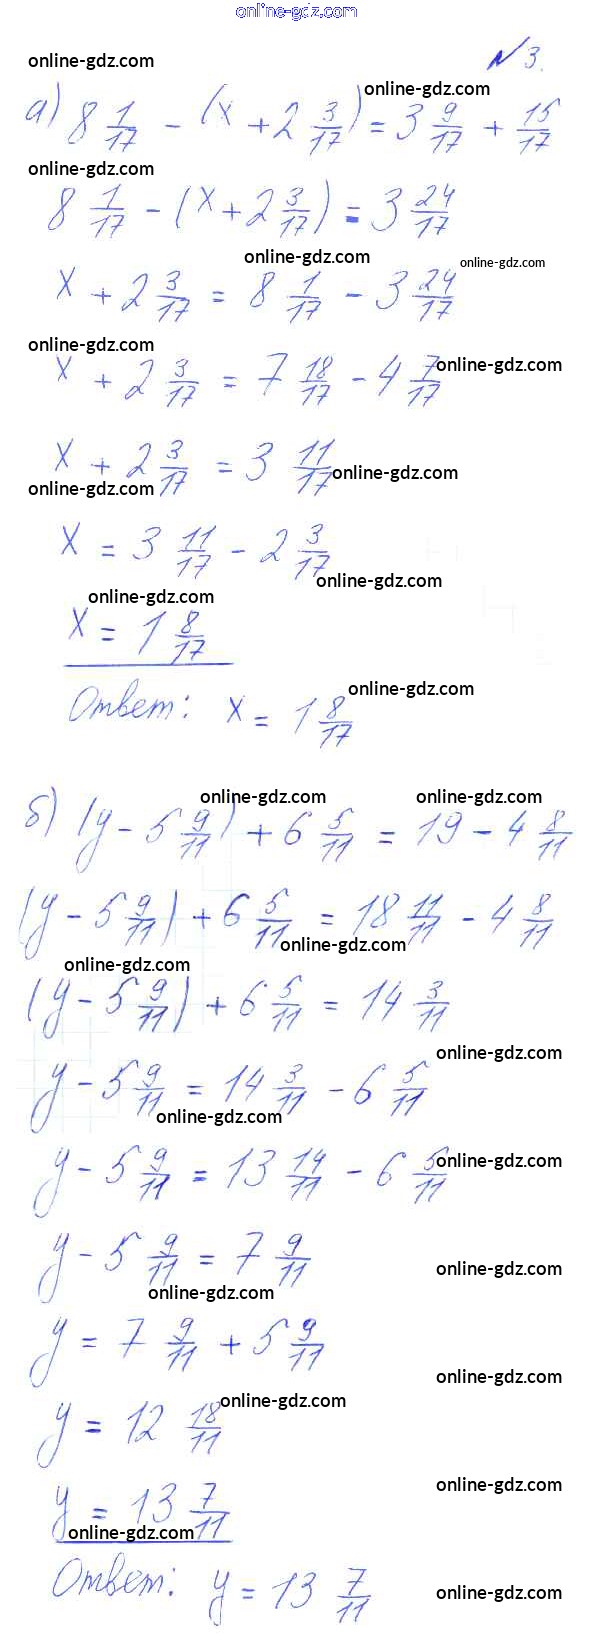 online-gdz.com
online-gdz.com
№ 3.
online-gdz.com
а) 8 1/17 - (x + 2 3/17) = 3 9/17 + 15/17
online-gdz.com
8 1/17 - (x + 2 3/17) = 3 24/17
online-gdz.com online-gdz.com
x + 2 3/17 = 8 1/17 - 3 24/17
online-gdz.com
online-gdz.com
x + 2 3/17 = 7 18/17 - 4 7/17
x + 2 3/17 = 3 11/17
online-gdz.com
online-gdz.com
x = 3 11/17 - 2 3/17
online-gdz.com
online-gdz.com
x = 1 8/17
online-gdz.com
Ответ: x = 1 8/17
online-gdz.com online-gdz.com
б) (y - 5 9/11) + 6 5/11 = 19 - 4 8/11
(y - 5 9/11) + 6 5/11 = 18 11/11 - 4 8/11
online-gdz.com
online-gdz.com
(y - 5 9/11) + 6 5/11 = 14 3/11
online-gdz.com
y - 5 9/11 = 14 3/11 - 6 5/11
online-gdz.com
online-gdz.com
y - 5 9/11 = 13 14/11 - 6 5/11
y - 5 9/11 = 7 9/11
online-gdz.com
online-gdz.com
y = 7 9/11 + 5 9/11
online-gdz.com
online-gdz.com
y = 12 18/11
online-gdz.com
y = 13 7/11
online-gdz.com
Ответ: y = 13 7/11
online-gdz.com